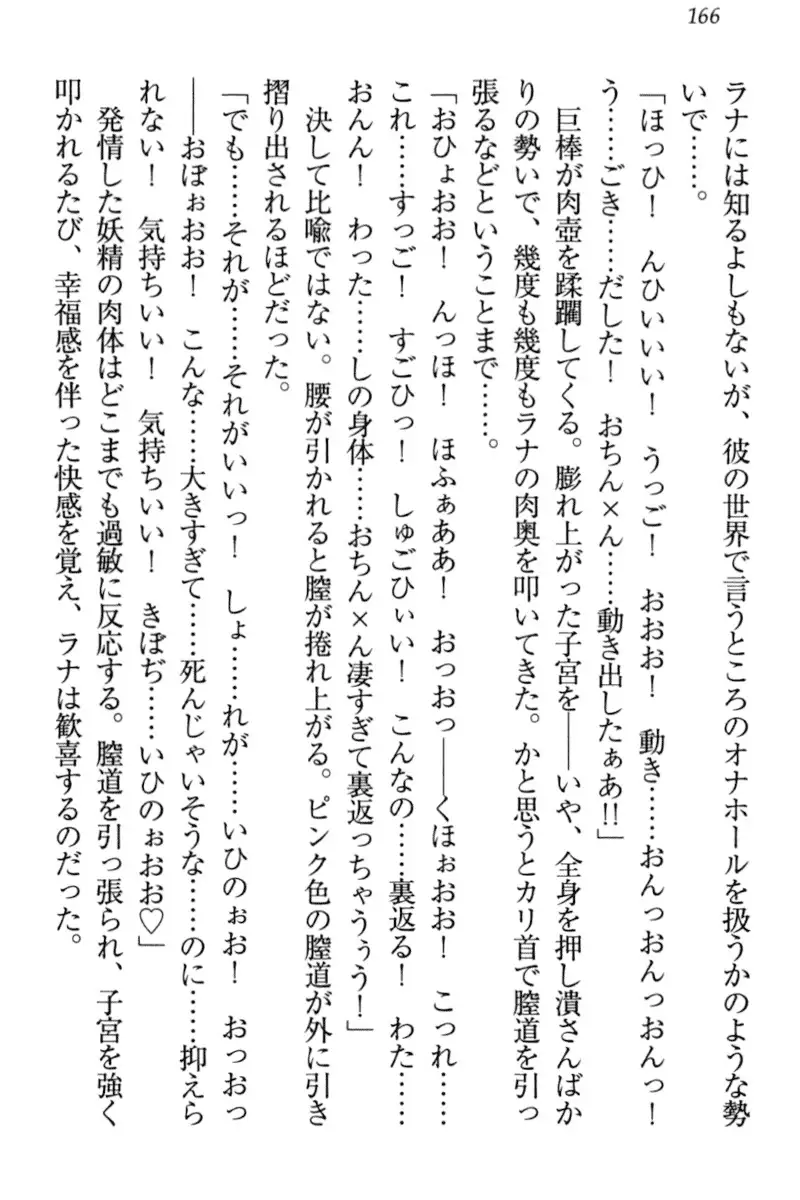 166
ラナには知るよしもないが、彼の世界で言うところのオナホールを扱うかのような勢
いで……。
「ほっひ！　んひいいい！　うっご！　おおお！　動き……おんっおんっおんっ！
う……ごき……だした！　おちん×ん……動き出したぁあ!!」
　巨棒が肉壺を蹂躙してくる。膨れ上がった子宮を――いや、全身を押し潰さんばか
りの勢いで、幾度も幾度もラナの肉奥を叩いてきた。かと思うとカリ首で膣道を引っ
張るなどということまで……。
「おひょおお！　んっほ！　ほふぁああ！　おっおっ――くほぉおお！　こっれ……
これ……すっご！　すごひっ！　しゅごひぃい！　こんなの……裏返る！　わた……
おんん！　わった……しの身体……おちん×ん凄すぎて裏返っちゃうぅう！」
　決して比喩ではない。腰が引かれると膣が捲れ上がる。ピンク色の膣道が外に引き
摺り出されるほどだった。
「でも……それが……それがいいっ！　しょ……れが……いひのぉお！　おっおっ
――おぼぉおお！　こんな……大きすぎて……死んじゃいそうな……のに……抑えら
れない！　気持ちいい！　気持ちいい！　きぼぢ……いひのぉおお♡」
　発情した妖精の肉体はどこまでも過敏に反応する。膣道を引っ張られ、子宮を強く
叩かれるたび、幸福感を伴った快感を覚え、ラナは歓喜するのだった。